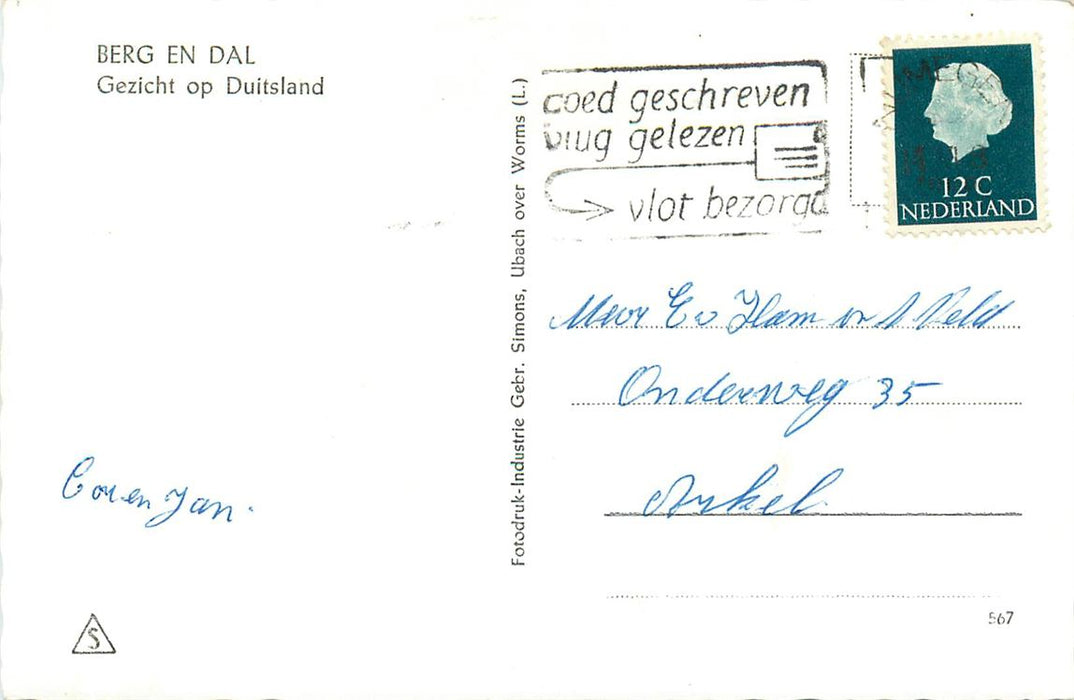 BERG EN DAL
Gezicht op Duitsland
Fotodruk-Industrie Gebr. Simons, Ubach over Worms (L.)
goed geschreven
vlug gelezen
vlot bezorgd
NIJMEGEN
12 C
NEDERLAND
Mevr E v Ham
Onderweg 35
Arkel
Cor en Jan.
S
567